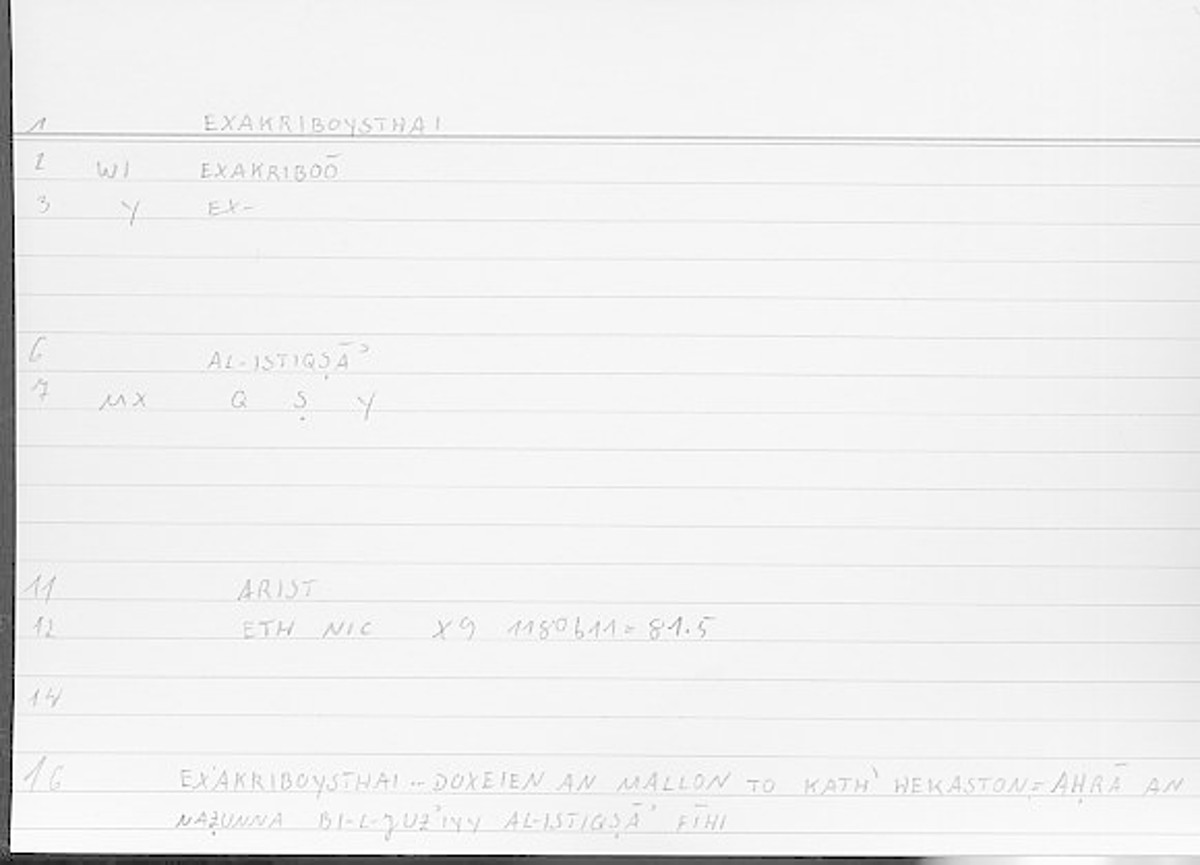 1 EXAKRIBOYSTHAI
2 WI EXAKRIBOŌ
3 Y EX-
6 AL-ISTIQṢĀʾ
7 MX Q Ṣ Y
11 ARIST
12 ETH NIC X9 1180b11=81.5
14
16 EXAKRIBOYSTHAI -- DOXEIEN AN MALLON TO KATH' HEKASTON = AḤRĀ AN
NAẒUNNA BI-L-ǦUZʾIYY AL-ISTIQṢĀʾ FĪHI